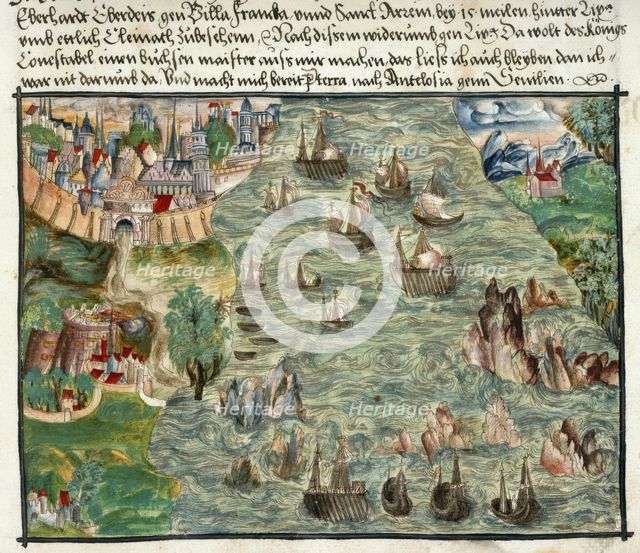 Eberhardt Eberders gen Villa Francka vnnd Sanct Arzein, bey 15 meilen hinter Liz=
vmb ettlich Cleinath zubesehenn, Nach disem widerumb gen Liz= Da wolt des Königs
Conestabel einen büchsen maister auss mir machen, das liess ich auch bleyben dan ich
war nit darumb da. Vnd macht mich bereit Pterra nach Antelosia genn Sevilien.
Heritage
Heritage
Heritage
Heritage
Heritage
Heritage
Heritage
Heritage
Heritage